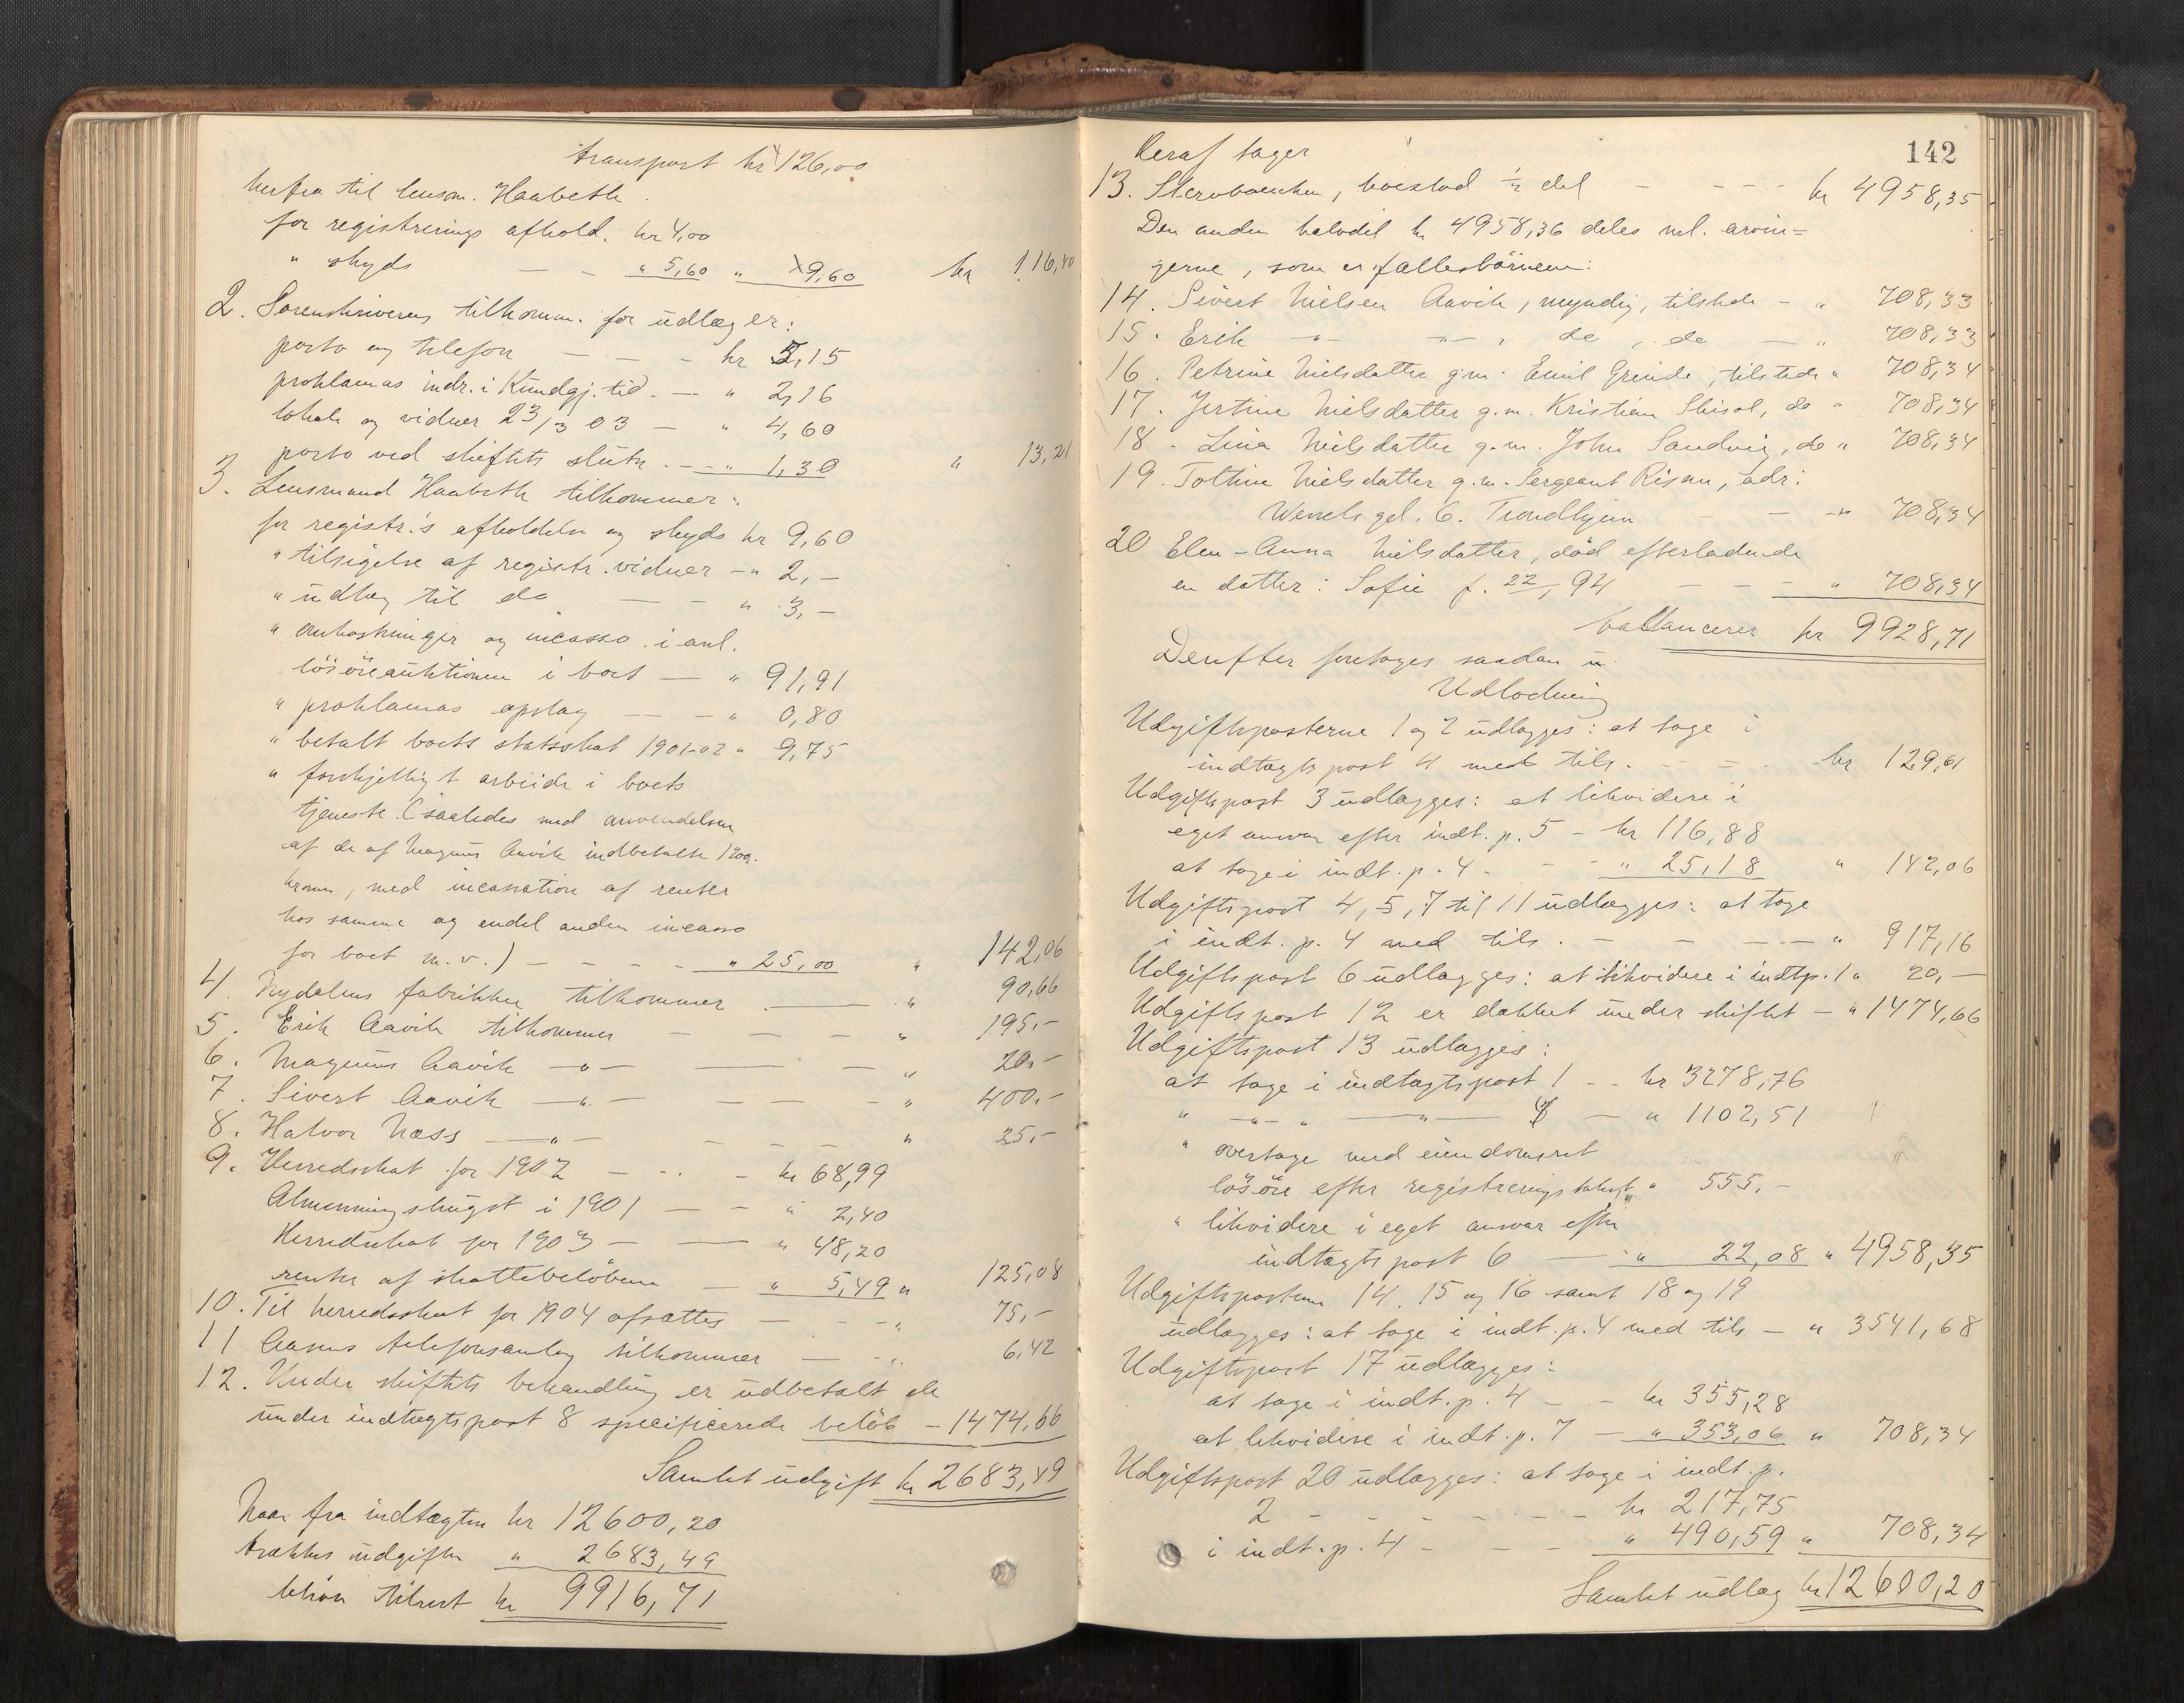 transport kr 126,00
herfra til lensm. Haabeth
for registrerings afhold. kr 4,00
" skyds — — " 5,60 " 9,60 kr 116,40
2. Sorenskriverens tilkomm. for udlæg er:
porto og telefon — — - kr 5,15
proklamas indr. i Kundgj. tid. — " 2,16
lokale og vidner 23/3 03 — " 4,60
porto ved skiftets slutn. — " 1,30 " 13,21
3. Lensmand Haabeth tilkommer:
for registr.'s afholdelse og skyds kr 9,60
" tilsigelse af registr. vidner — " 2,—
" udlæg til do — — " 3,—
" omkostninger og incasso i anl.
løsøreauktionen i boet — " 91,91
" proklamas opslag — — " 0,80
" betalt boets statsskat 1901-02 " 9,75
" forskjelligt arbeide i boets
tjeneste (saaledes med anvendelsen
af de af Magnus Aavik indbetalte 1200
kroner, med incassation af renter
hos samme og endel anden incasso
for boet m.v.) — - - - " 25,00 " 142,06
4. Nydalens fabrikker tilkommer — " 90,66
5. Erik Aavik tilkommer — — — " 195,-
6. Magnus Aavik —"— — — " 20,-
7. Sivert Aavik —"— — — — " 400,-
8. Halvor Næss —"— — — — " 25,-
9. Herredsskat for 1902 — - - kr 68,99
Almenningskugst i 1901 — — " 2,40
Herredsskat for 1903 — — " 48,20
renter af skattebeløbene — " 5,49 " 125,08
10. Til herredsskat for 1904 afsættes — - - " 75,-
11 Aasens telefonsamlag tilkommer — - " 6,42
12. Under skiftets behandling er udbetalt de
under indtægtspost 8 specificerede beløb - 1474,66
Samlet udgift kr 2683,49
Naar fra indtægten kr 12600,20
trækkes udgiften " 2683,49
bliver tilrest kr 9916,71
142
Heraf tager
13. Sterboenken, boeslod ½ del - - - - kr 4958,35
Den anden halvdel kr 4958,36 deles ml. arvin=
gerne, som er fællesbörnene:
14. Sivert Nielsen Aavik, myndig, tilstede - " 708,33
15. Erik —"— —"—, do, do — " 708,33
16. Petrine Nielsdatter g.m. Emil Grinde, tilstede " 708,34
17. Jertine Nielsdatter g.m. Kristian Skisol, do " 708,34
18. Lina Nielsdatter g.m. John Sandvig, do " 708,34
19. Toline Nielsdatter g.m. Sergeant Risan, adr:
Wessels gd. 6. Trondhjem — — " 708,34
20 Elen-Anna Nielsdatter, död efterladende
en datter: Sofie f. 22/, 94 - - - " 708,34
ballancerer kr 9928,71
Derefter foretoges saadan
Udlodning
Udgiftsposterne 1 og 2 udlægges: at tage i
indtægtspost 4 med tils. - - - - kr 129,61
Udgiftspost 3 udlægges: at likvidere i
eget ansvar efter indt. p. 5 - kr 116,88
at tage i indt. p. 4 - - - " 25,18 " 142,06
Udgiftspost 4, 5, 7 til 11 udlægges: at tage
i indt. p. 4 med tils. - - - — " 917,16
Udgiftspost 6 udlægges: at likvidere i indtp. 1 " 20,—
Udgiftspost 12 er dækket under skiftet — " 1474,66
Udgiftspost 13 udlægges:
at tage i indtægtspost 1 - - kr 3278,76
" —"— " —"— 4 — " 1102,51
" overtage med eiendomsret
løsøre efter registreringstakst " 555,-
" likvidere i eget ansvar efter
indtægtspost 6 — " 22,08 " 4958,35
Udgiftsposterne 14, 15 og 16 samt 18 og 19
udlægges: at tage i indt. p. 4 med tils — " 3541,68
Udgiftspost 17 udlægges:
at tage i indt. p. 4 - - kr 355,28
at likvidere i indt. p. 7 — " 353,06 " 708,34
Udgiftspost 20 udlægges: at tage i indt. p.
2 - - - - - - kr 217,75
i indt. p. 4 - - - " 490,59 " 708,34
Samlet udlæg kr 12600,20